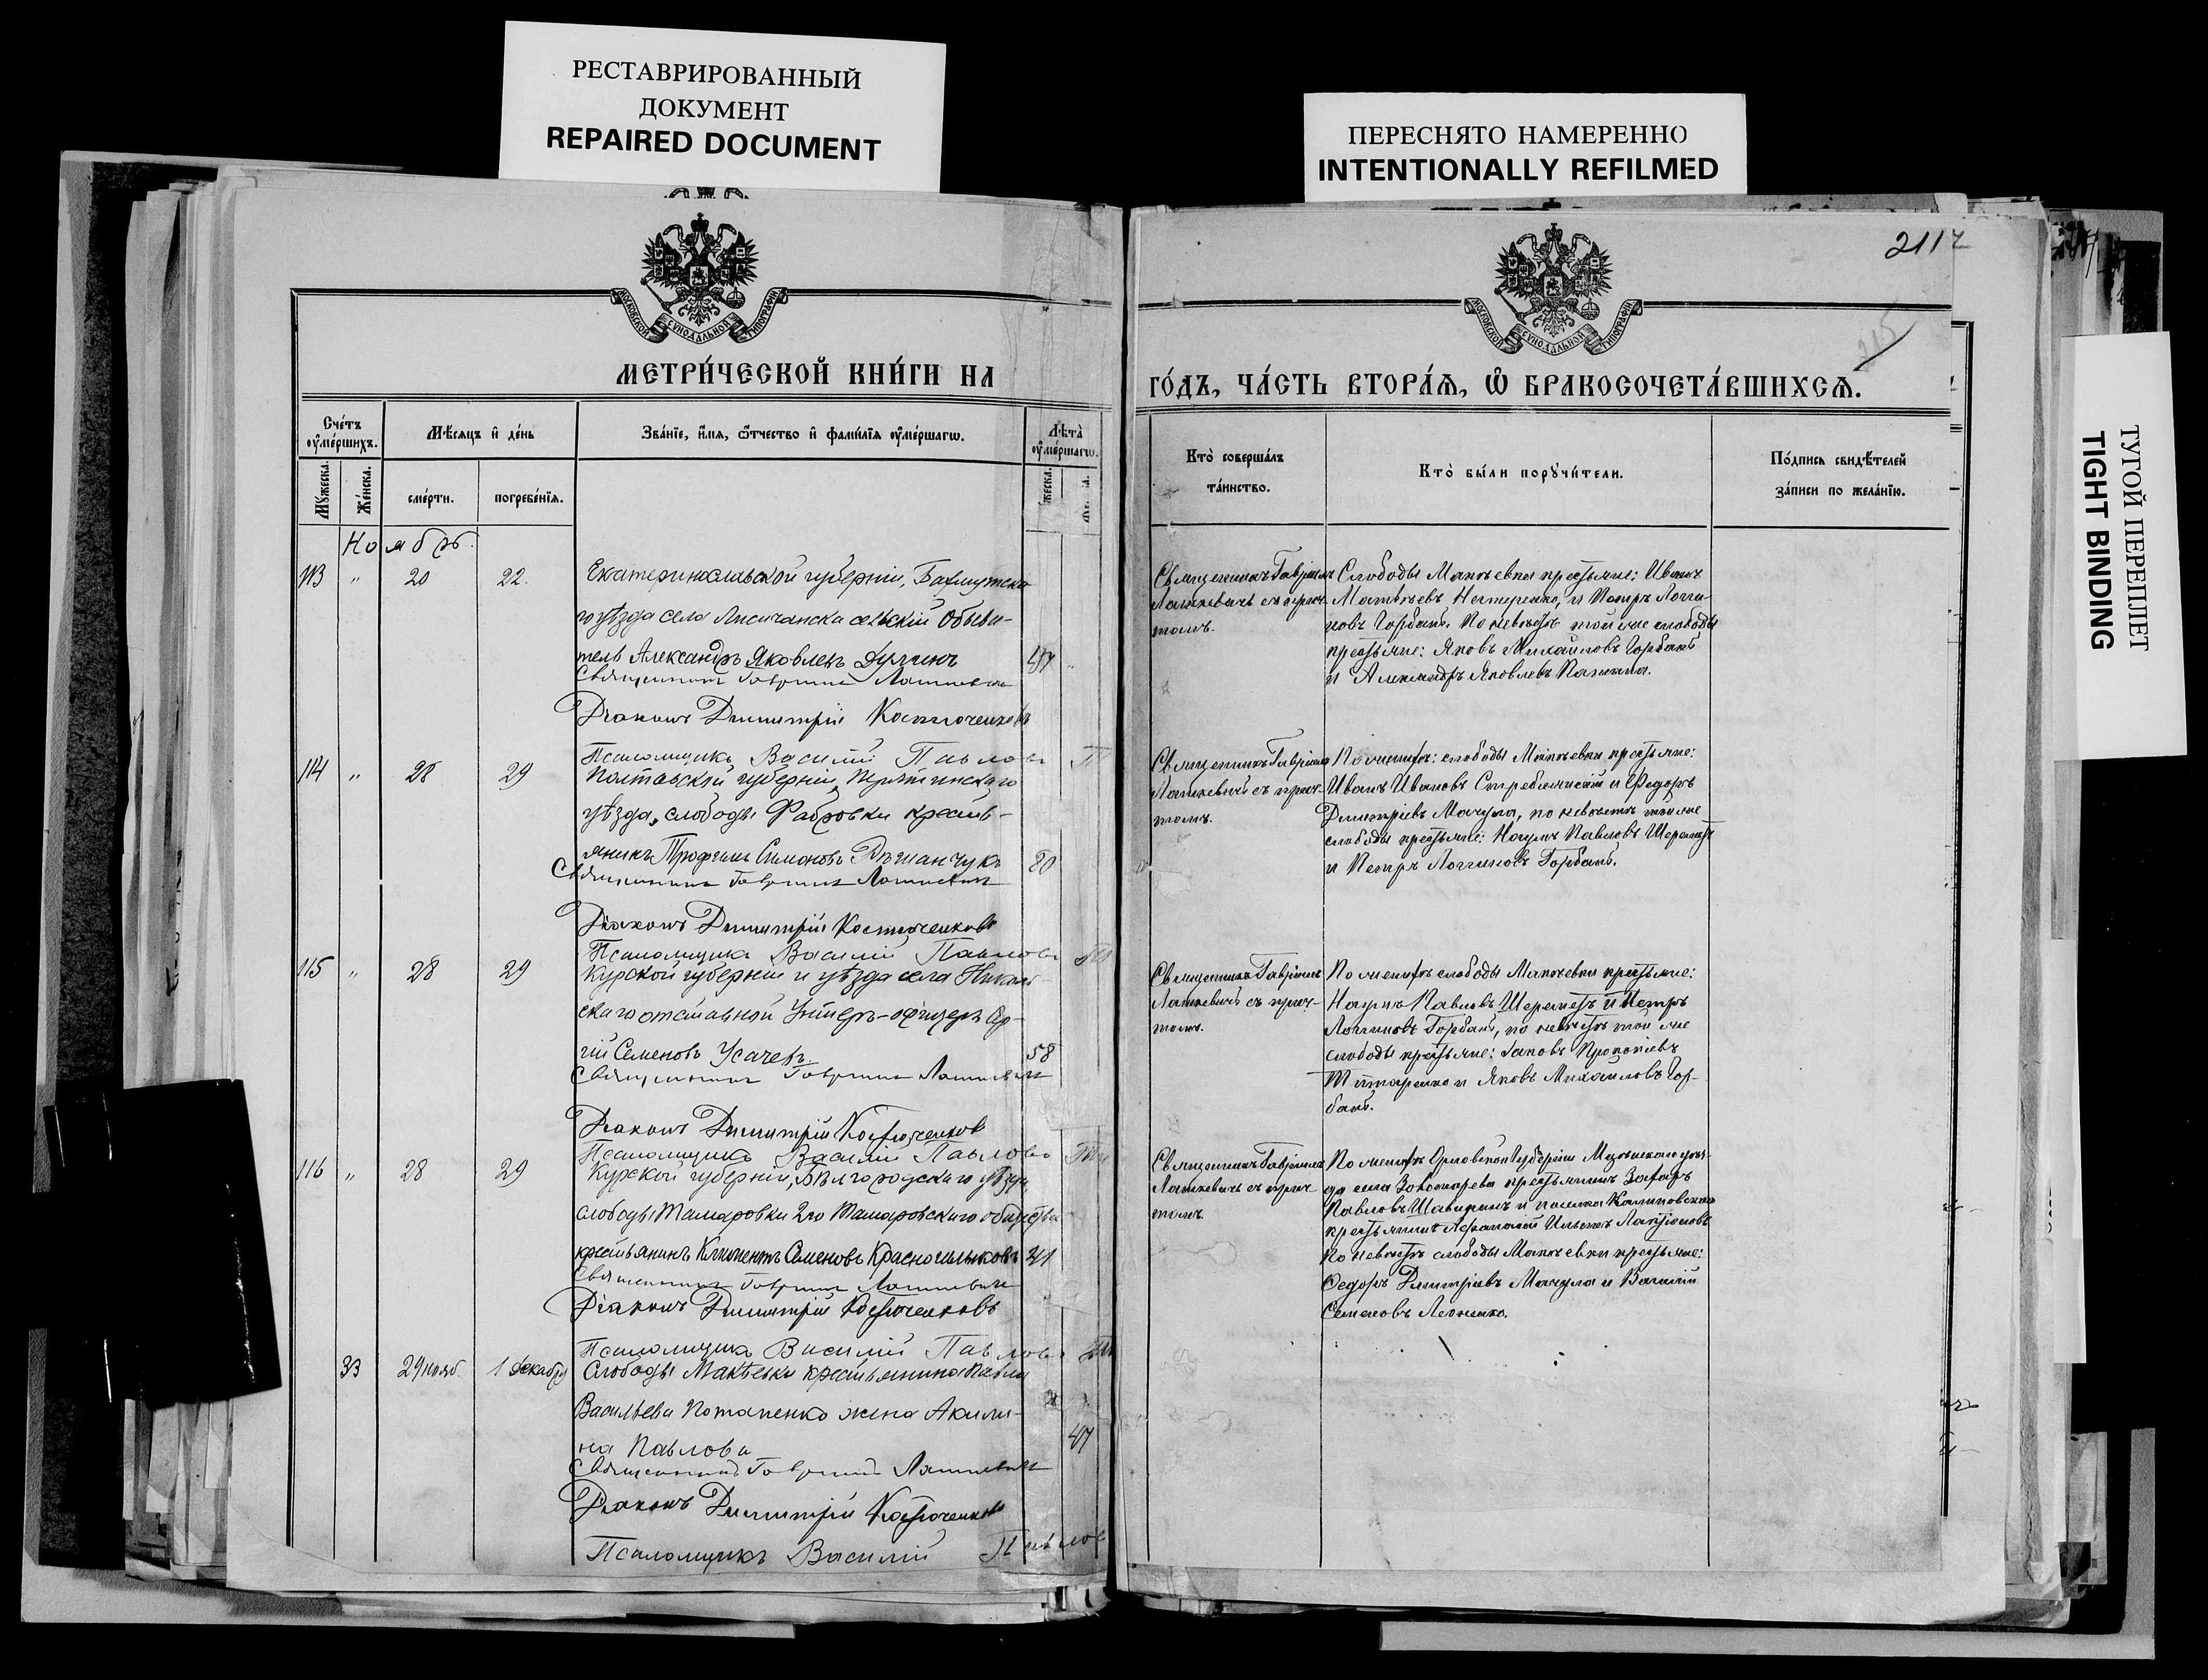 РЕСТАВРИРОВАННЫЙ
ДОКУМЕНТ
REPAIRED DOCUMENT
ПЕРЕСНЯТО НАМЕРЕННО
INTENTIONALLY REFILMED
ТУГОЙ ПЕРЕПЛЕТ
TIGHT BINDING
МОСКОВСКОЙ СѴНОДАЛЬНОЙ ТИПОГРАФІИ
МЕТРИ́ЧЕСКОЙ КНИ́ГИ НА
Сче́тъ оу҆ме́ршихъ.
Мѣ́сяцъ и҆ де́нь
Зва́нїе, и҆́мя, ѻ҆́тчество и҆ фами́лїя оу҆ме́ршагѡ.
Лѣта̀ оу҆ме́ршагѡ.
Мꙋ́жеска.
Же́нска.
сме́рти.
погребе́нїя.
Ноябрь.
113 " 20 22. Екатеринославской губерніи, Бахмутска
го уѣзда села Лисичанска сельскій Обыва-
тель Александръ Яковлевъ Дугинъ 47
Священникъ Гавріилъ Лашкевичъ
Діаконъ Димитрій Костюченковъ
Псаломщикъ Василій Павловъ
114 " 28 29 Полтавской губерніи, Пирятинскаго
уѣзда, слободы Фабровки крестья-
янинъ Трофимъ Симоновъ 80
Священникъ Гавріилъ Лашкевичъ
Діаконъ Димитрій Костюченковъ
Псаломщикъ Василій Павловъ
115 " 28 29 Курской губерніи и уѣзда села Николь
скаго отставной Унтеръ-офицеръ Сер-
гій Семеновъ Усачевъ. 58
Священникъ Гавріилъ Лашкевичъ
Діаконъ Димитрій Костюченков
Псаломщикъ Василій Павловъ
116 " 28 29 Курской губерніи, Бѣлгородскаго уѣзда,
слободы Тамаровки 2го Тамаровскаго общества
крестьянинъ Климентъ Семеновъ Красночильниковъ 21
Священникъ Гавріилъ Лашкевичъ
Діаконъ Димитрій Костюченковъ
Псаломщикъ Василій Павловъ
33 29 нояб. 1 декабр Слободы Макѣевки крестьянина Павла
Васильева Потапенко жена Акили-
на Павлова 47
Священникъ Гавріилъ Лашкевичъ
Діаконъ Димитрій Костюченковъ
Псаломщикъ Василій Павлов
2117
215
МОСКОВСКОЙ СѴНОДАЛЬНОЙ ТИПОГРАФІИ
ГО́ДЪ, ЧА́СТЬ ВТОРА́Ѧ, Ѽ БРАКОСОЧЕТА́ВШИХСѦ.
Кто̀ соверша́лъ та́инство.
Кто̀ бы́ли порꙋчи́тели.
По́дпись свидѣ́телей за́писи по жела́нїю.
Священникъ Гавріилъ
Лашкевичъ съ прич-
томъ.
Слободы Макѣевки крестьяне: Иванъ
Матвѣевъ Нестеренко, и Петръ Логги-
новъ Горбань. По невѣстѣ той же слободы
крестьяне: Яковъ Михайловъ Горбань
и Александръ Яковлевъ
Священникъ Гавріилъ
Лашкевичъ съ прич-
томъ.
По женихѣ: слободы Макѣевки крестьяне:
Иванъ Ивановъ и Федоръ
Дмитріевъ Мачула, по невѣстѣ той же
слободы крестьяне: Наумъ Павловъ Шереметъ
и Петръ Логгиновъ Горбань.
Священникъ Гавріилъ
Лашкевичъ съ прич-
томъ.
По женихѣ слободы Макѣевки крестьяне:
Наумъ Павловъ Шереметъ и Петръ
Логгиновъ Горбань, по невѣстѣ той же
слободы крестьяне: Прокопіевъ
Титаренко и Яковъ Михаиловъ Гор-
бань.
Священникъ Гавріилъ
Лашкевичъ съ прич-
томъ.
По женихѣ Орловской губерніи уѣз-
да села крестьянинъ Захаръ
Павловъ и поселка Калиновскаго
крестьянинъ Афанасій Ильинъ
по невѣстѣ слободы Макѣевки крестьяне:
Федоръ Дмитріевъ Мачула и Василій
Семеновъ Леоненко.